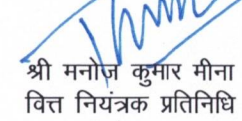 श्री मनोज कुमार मीना
वित्त नियंत्रक प्रतिनिधि